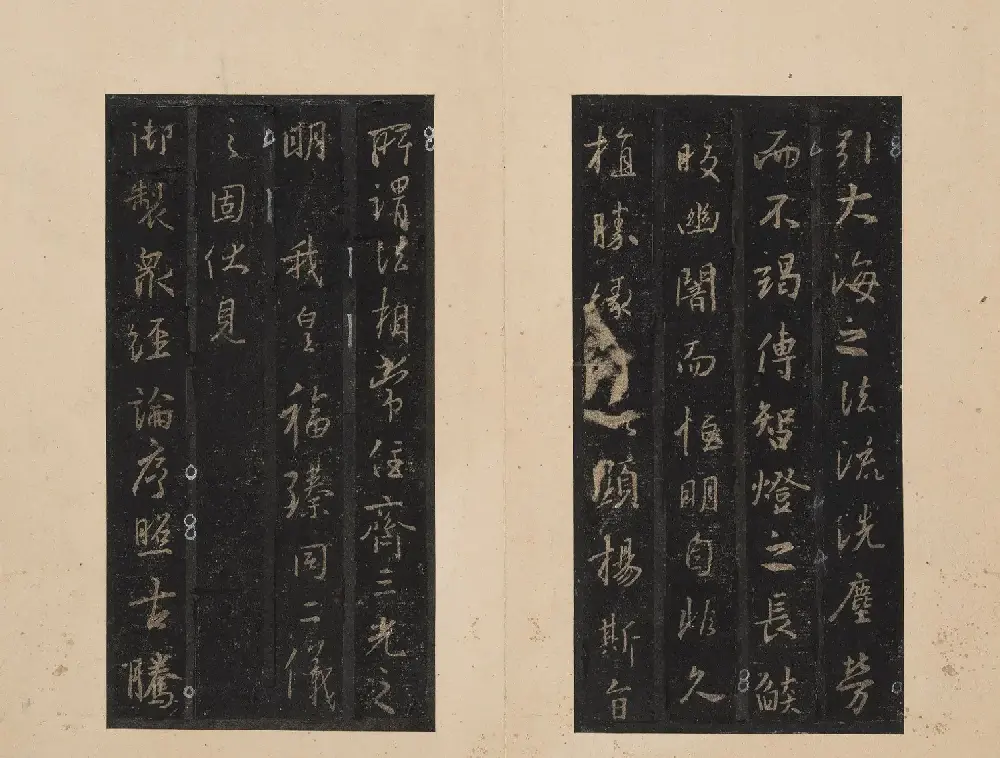 引大海之法流洗塵勞
而不竭傳智燈之長燄
皎幽闇而恒明自非久
植勝緣何以顯揚斯旨
所謂法相常住齊三光之
明我皇福臻同二儀
之固伏見
御製衆經論序照古騰